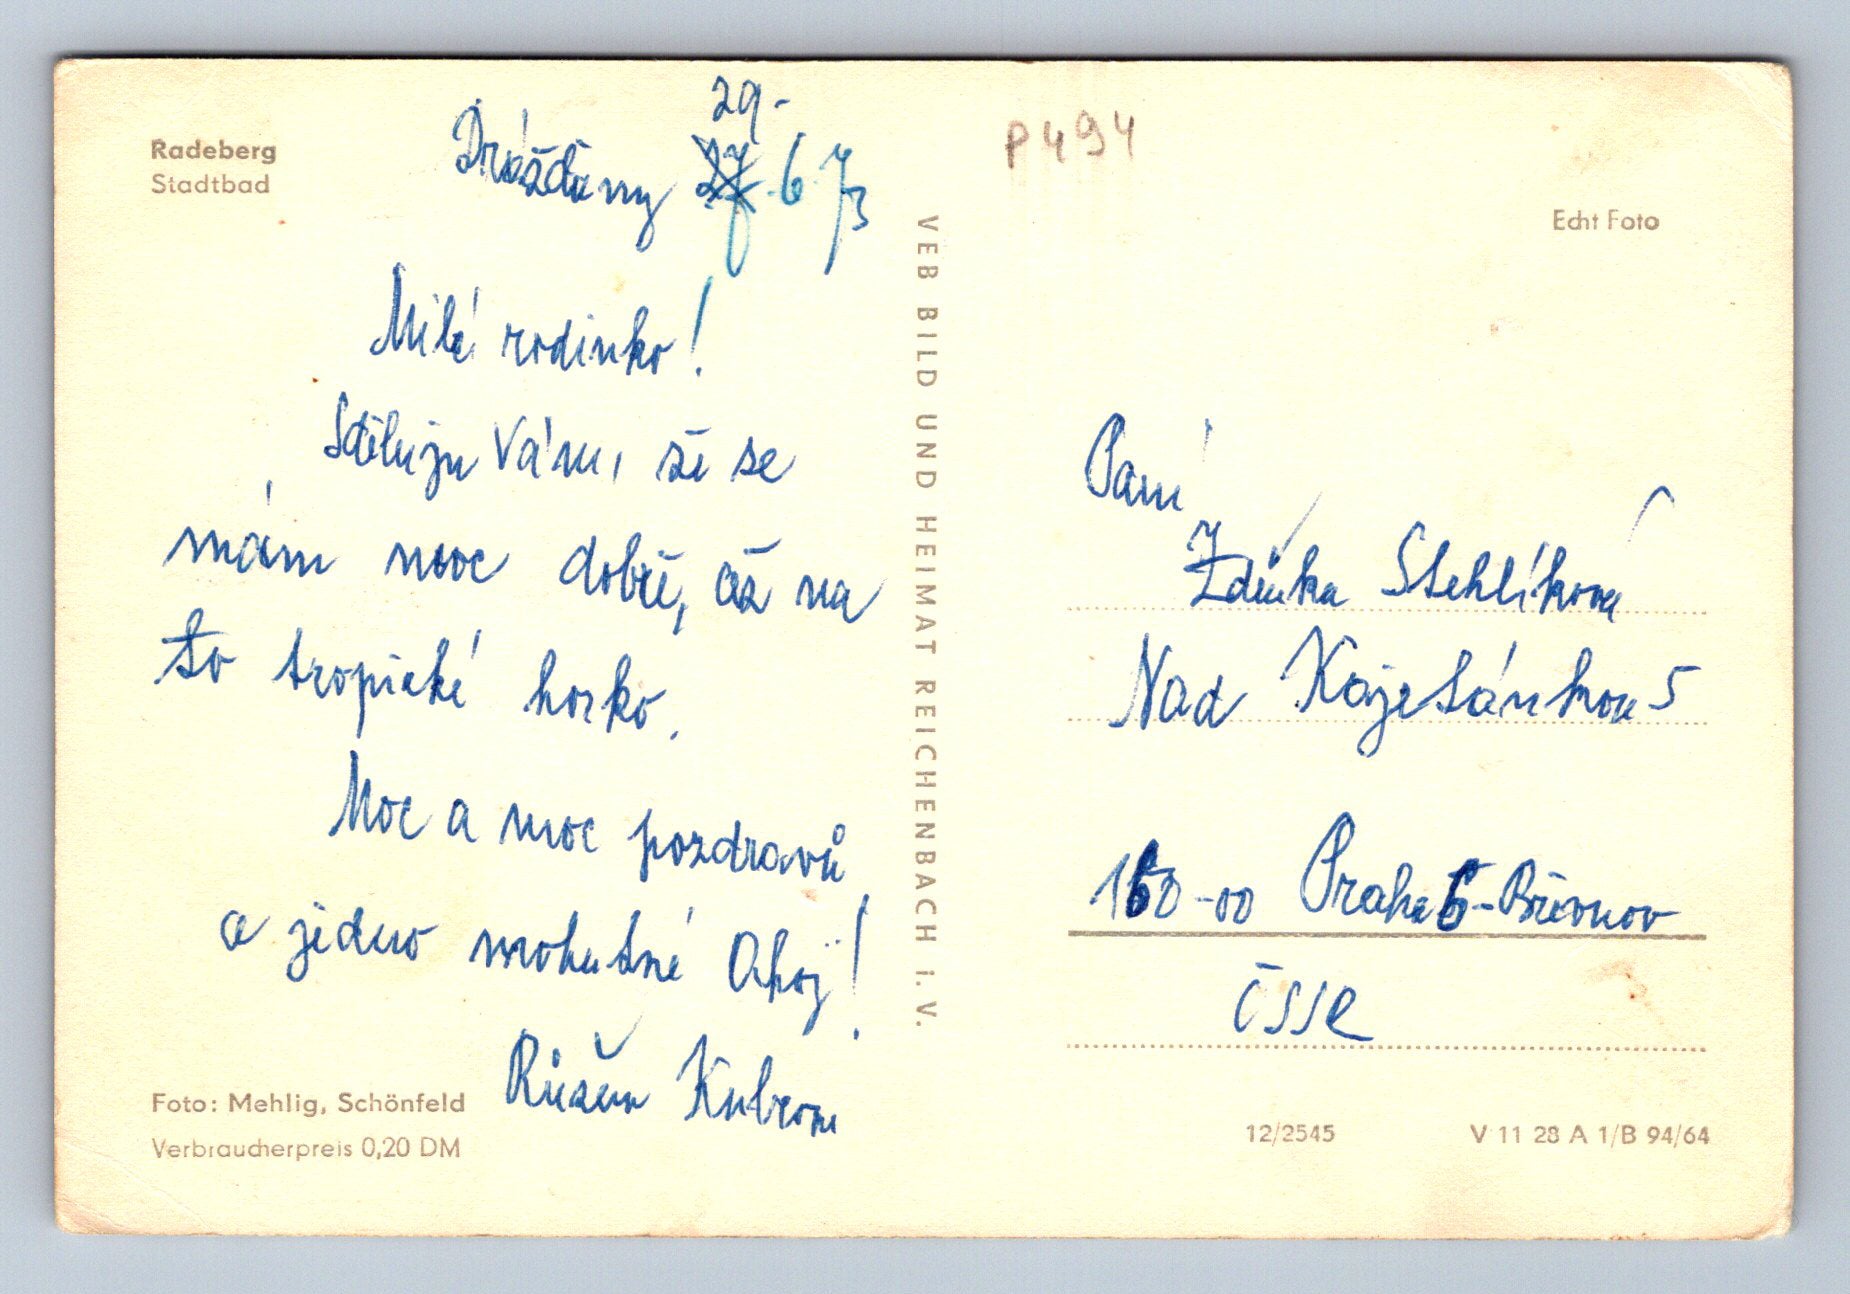 Radeberg
Stadtbad
Drážďany 29. 6. 73
Milá rodinko!
Sděluju Vám, že se
mám moc dobře, až na
to tropické horko.
Moc a moc pozdravů
a jedno mohutné Ahoj!
Růžena
Foto: Mehlig, Schönfeld
Verbraucherpreis 0,20 DM
VEB BILD UND HEIMAT REICHENBACH i. V.
P494
Echt Foto
Paní
Zdeňka Stehlíková
Nad Kajetánkou 5
160-00 Praha 6-Břevnov
ČSSR
12/2545
V 11 28 A 1/B 94/64